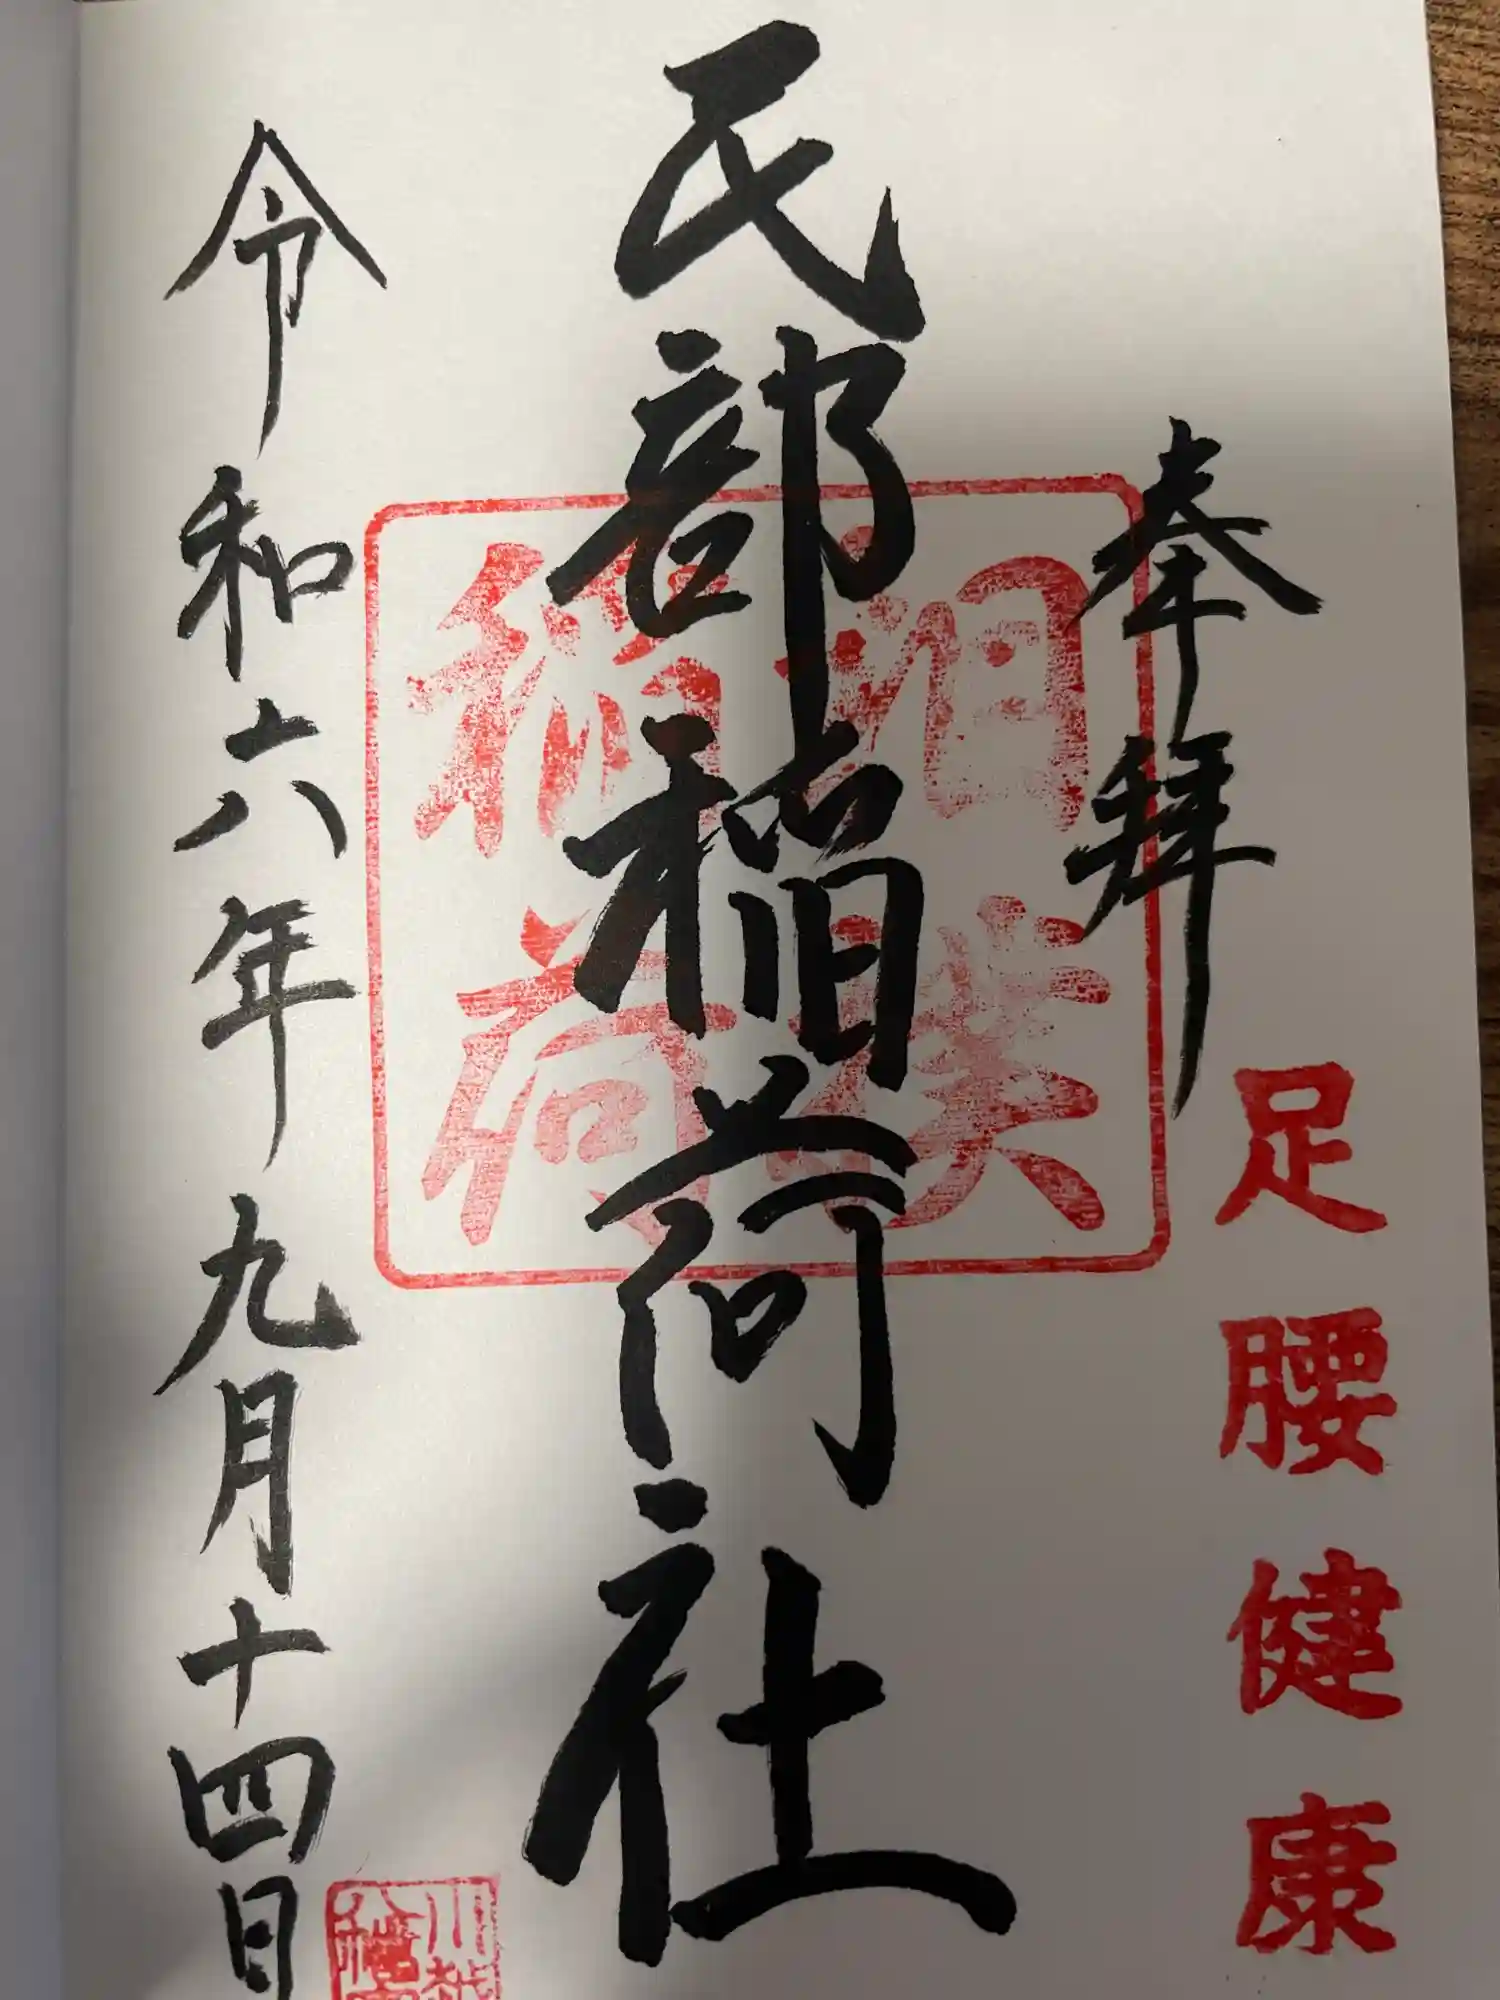 奉拝
足腰健康
民部稲荷社
相撲
稲荷
令和六年九月十四日
川越